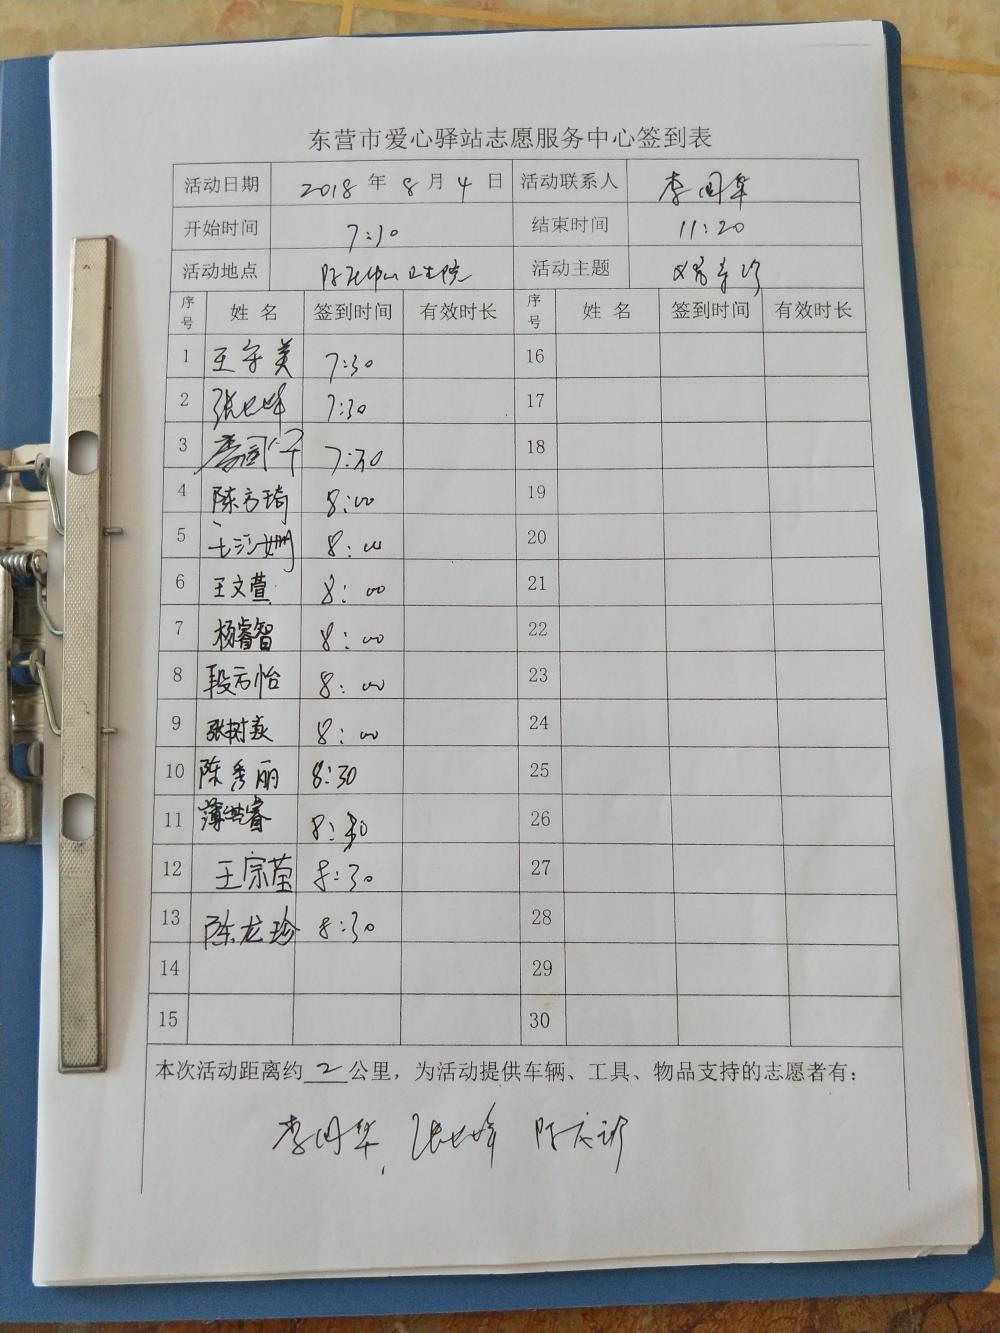 东营市爱心驿站志愿服务中心签到表
活动日期 2018 年 8 月 4 日 活动联系人 李国华
开始时间 7:30 结束时间 11:20
活动地点 卫生院 活动主题
序号 姓名 签到时间 有效时长 序号 姓名 签到时间 有效时长
1 王守美 7:30 16
2 7:30 17
3 7:30 18
4 陈方琦 8:00 19
5 8:00 20
6 王文萱 8:00 21
7 杨睿智 8:00 22
8 8:00 23
9 8:00 24
10 陈秀丽 8:30 25
11 8:30 26
12 王宗莹 8:30 27
13 陈龙珍 8:30 28
14 29
15 30
本次活动距离约 2 公里，为活动提供车辆、工具、物品支持的志愿者有：
李国华